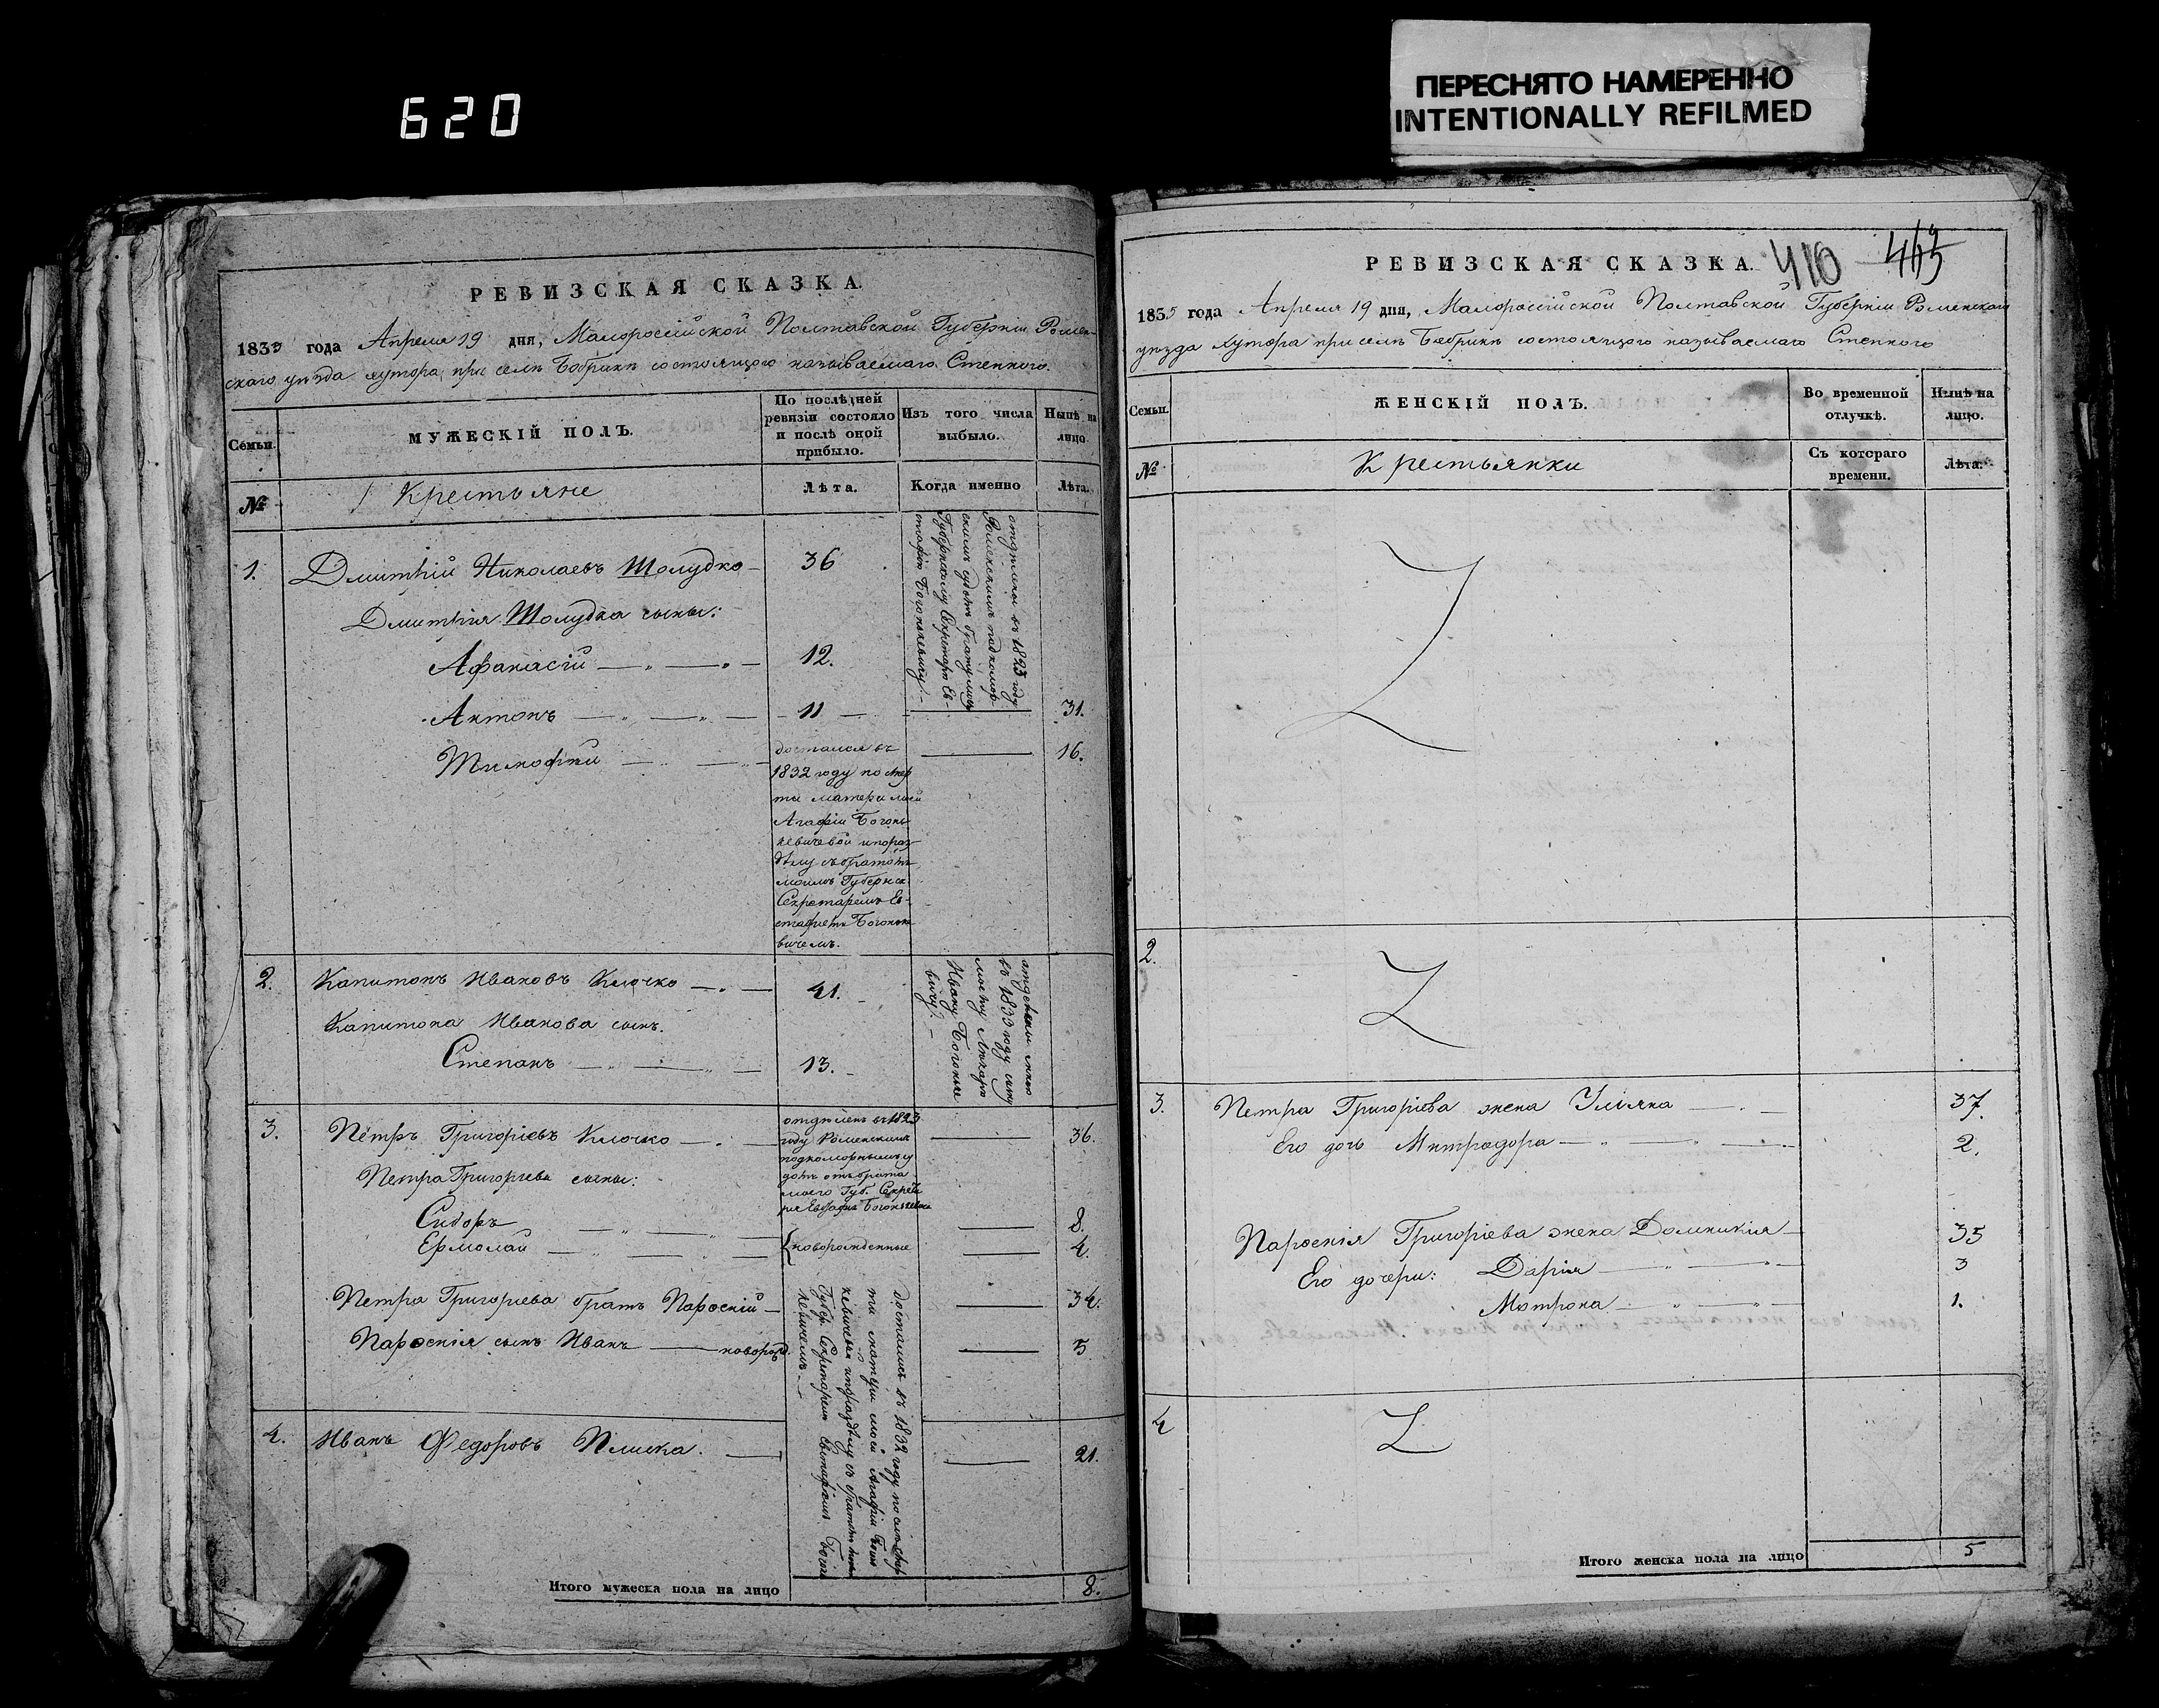 620
ПЕРЕСНЯТО НАМЕРЕННО
INTENTIONALLY REFILMED
РЕВИЗСКАЯ СКАЗКА.
1835 года Апреля 19 дня, Малороссійской Полтавской Губерніи Ромен-
скаго уѣзда хутора при селѣ Бобрикѣ состоящого называемаго Степного.
Семьи.
МУЖЕСКІЙ ПОЛЪ.
По послѣдней
ревизіи состояло
и послѣ оной
прибыло.
Изъ того числа
выбыло.
Нынѣ на
лицо.
№
Крестьяне
Лѣта.
Когда именно
Лѣта.
1. Дмитрій Николаевъ Шолудко 36
отделены въ 1823 году
Роменскимъ подкомор-
скимъ судомъ брату моему
Губернскому Секретарю Ев-
стафію Богонкевичу.
Дмитрія Шолудка сыны:
Афанасій 12.
Антонъ 11 31.
Тимофѣй 16.
достался въ
1832 году по смер
ти матери моей
Агафіи Богонь
кевичевой и пораз
дѣлу съ братомъ
моимъ Губернск
Секретаремъ Ев-
стафіемъ Богоньке
вичемъ.
2. Капитонъ Ивановъ Клочко 41.
Капитона Иванова сынъ.
Степанъ 13.
отделены мною
въ 1833 году сыну
моему Лекарю
Ивану Богоньке
вичу.
3. Пётръ Григоріевъ Клочко 36.
отделенъ въ 1823
году Роменскимъ
подкоморнымъ су
домъ отъ брата
моего Губ. Секрета
ря Евстафія Богонкевича
Петра Григорьева сыны:
Сидоръ 8.
Ермолай новорожденные 4.
Петра Григорьева братъ Парфеній 34.
Парфенія сынъ Иванъ новорожд. 5
достались въ 1832 году по смерти
матери моей Агафіи Богонь
кевичевой и поразделу съ братомъ моимъ
Губер. Секретаремъ Евстафіемъ Богонь
кевичемъ
4. Иванъ Федоровъ Плиска. 21.
Итого мужеска пола на лицо 8.
РЕВИЗСКАЯ СКАЗКА.
410 415
1835 года Апреля 19 дня, Малороссійской Полтавской Губерніи Роменскаго
уезда хутора при селѣ Бобрикѣ состоящого называемаго Степного
Семьи.
ЖЕНСКІЙ ПОЛЪ.
Во временной
отлучкѣ.
Нынѣ на
лицо.
№
Крестьянки
Съ котораго
времени.
Лѣта.
2.
3. Петра Григоріева жена Уліяна 37.
Его дочь Митродора 2.
Парфенія Григоріева жена Домникія 35
Его дочери: Дарія 3
Мотрона 1.
4
Итого женска пола на лицо 5